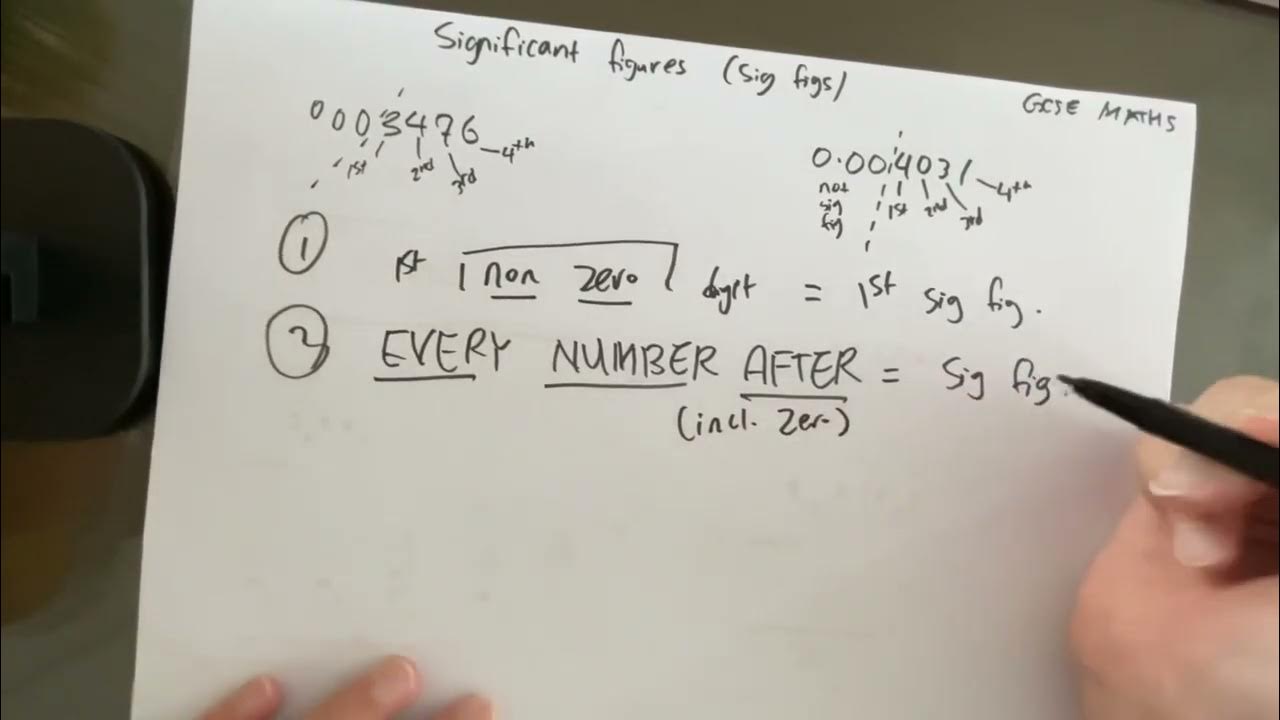 Significant figures (sig figs)
GCSE MATHS
0003476
1st 2nd 3rd 4th
0.004031
not sig fig
1st 2nd 3rd 4th
1 1st non zero digit = 1st sig fig.
2 EVERY NUMBER AFTER = sig fig.
(incl. zero)